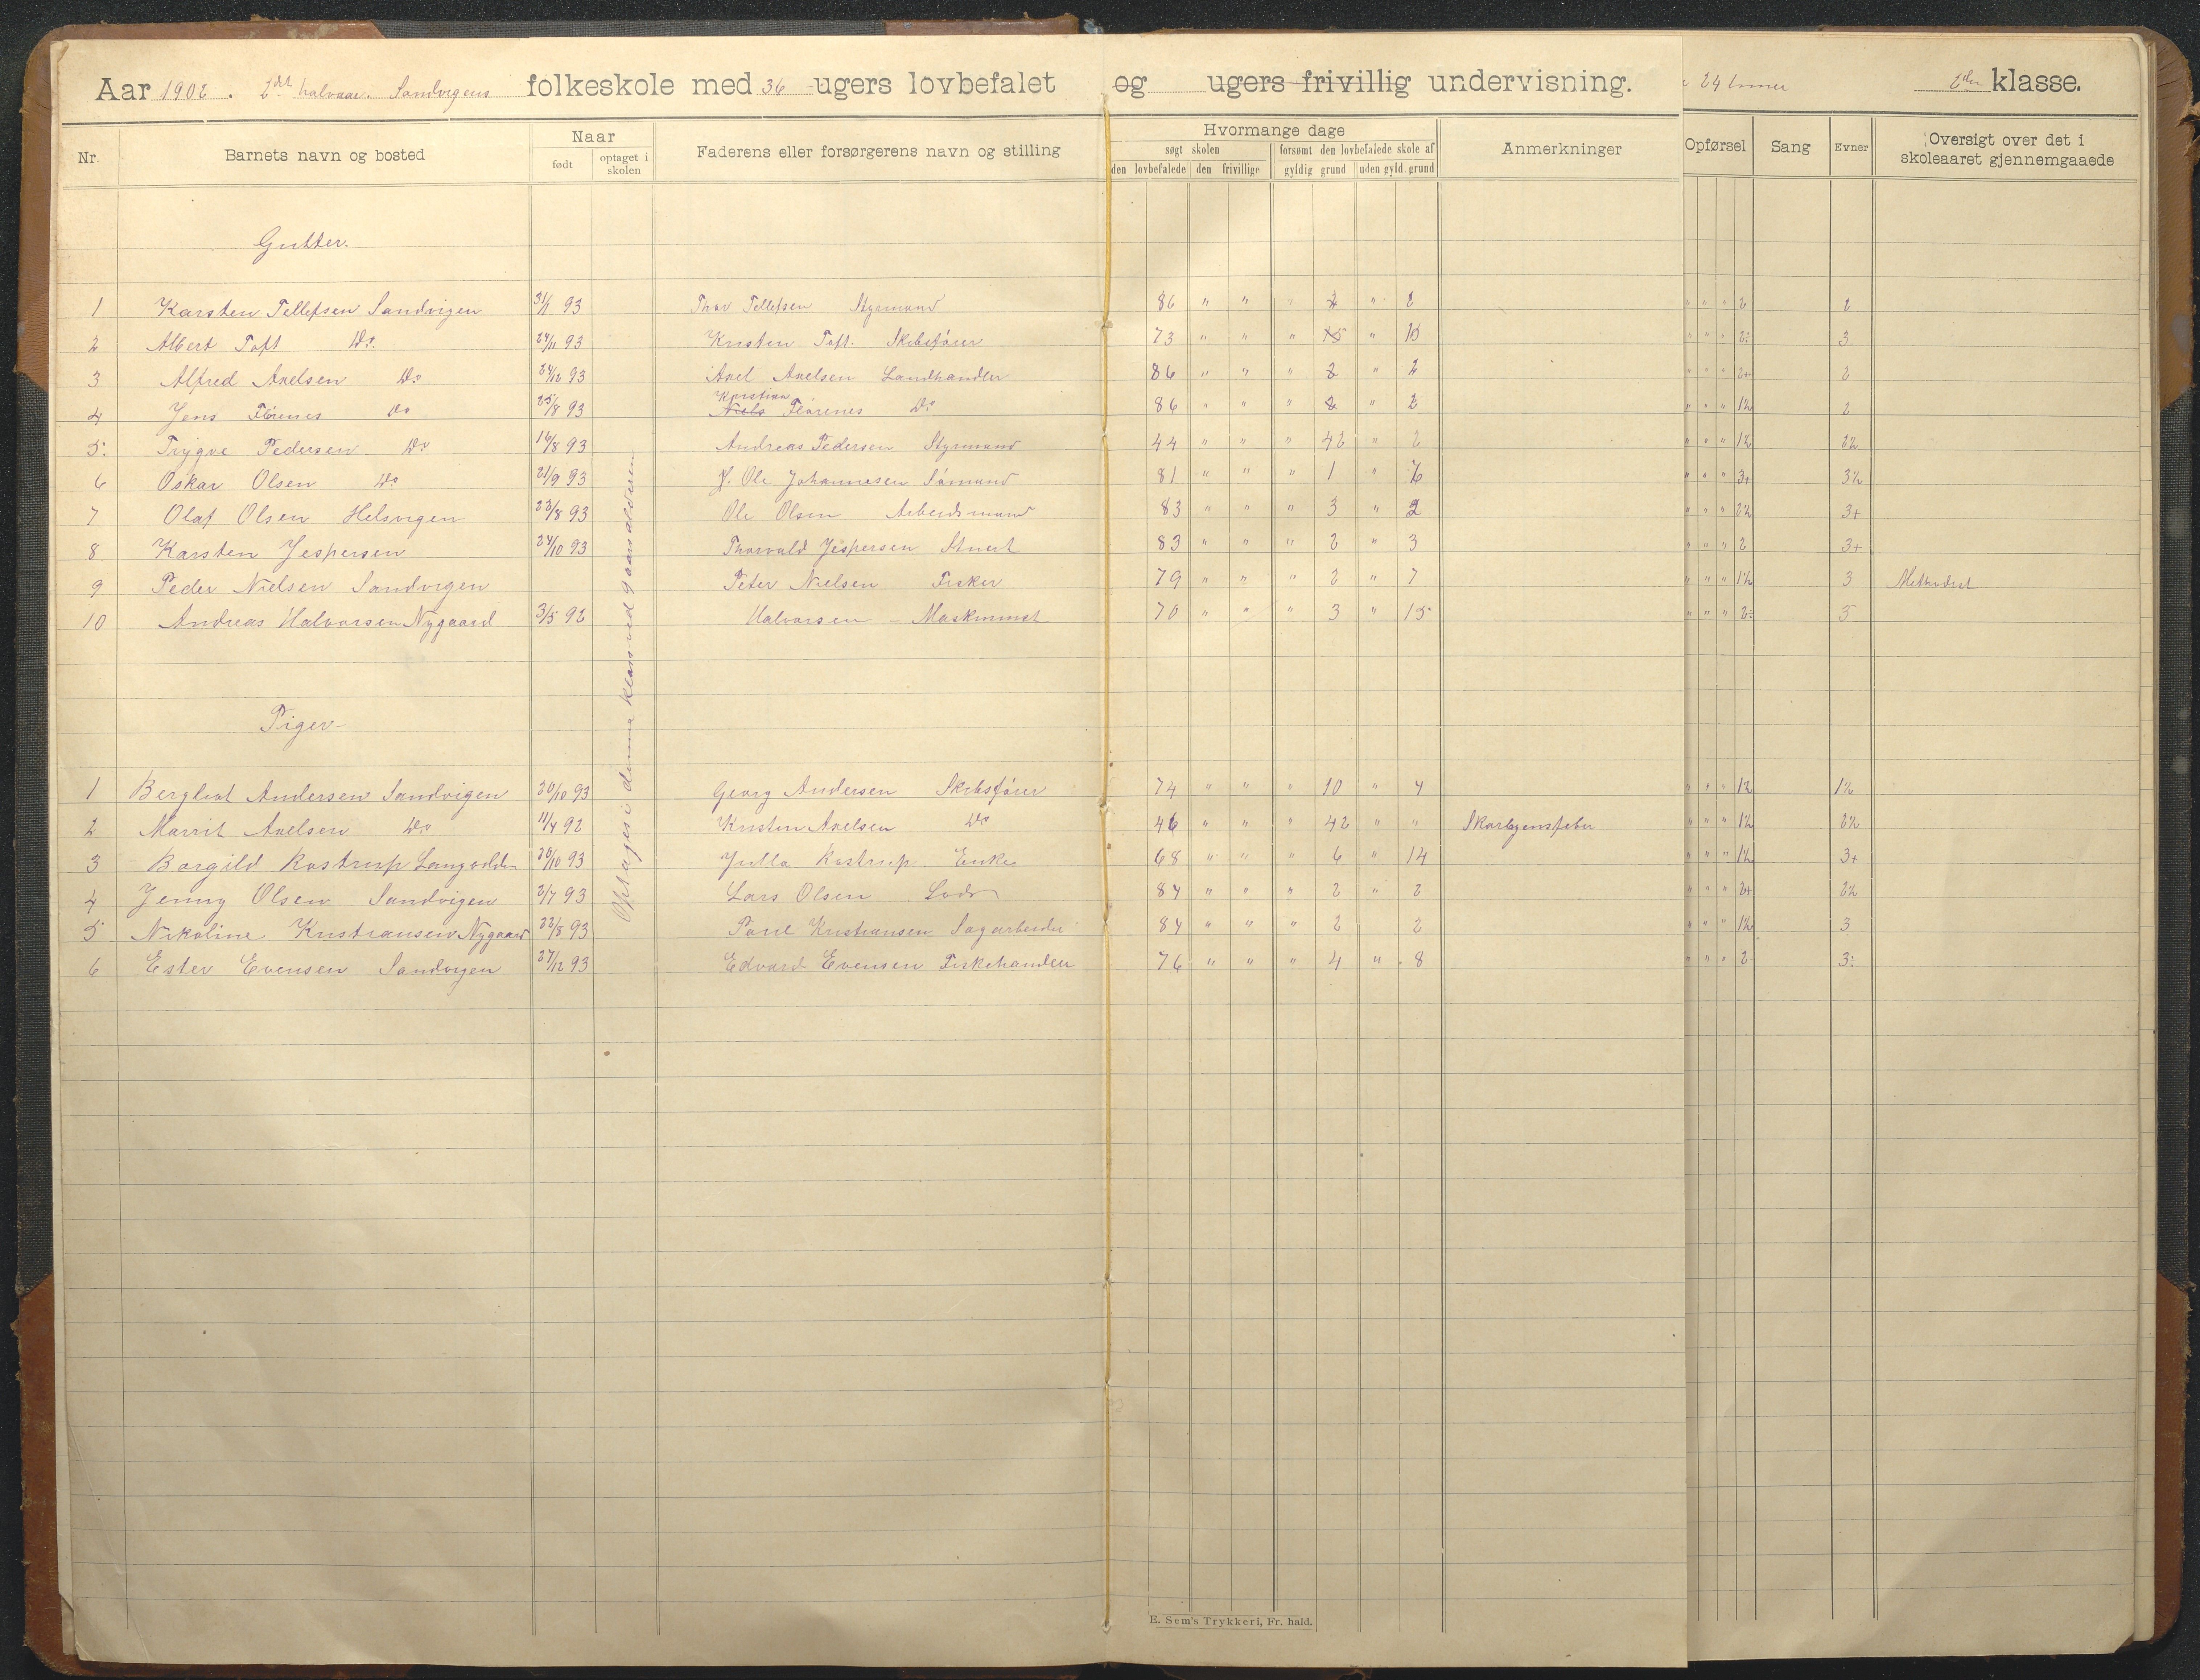 Aar 1902. 2det halvaar. Sandvigens folkeskole med 36 ugers lovbefalet og ugers frivillig undervisning. 24 timer 2den klasse.
Nr. Barnets navn og bosted Naar født optaget i skolen Faderens eller forsørgerens navn og stilling Hvormange dage søgt skolen den lovbefalede den frivillige forsømt den lovbefalede skole af gyldig grund uden gyld. grund Anmerkninger Opførsel Sang Evner Oversigt over det i skoleaaret gjennemgaaede
Gutter.
1 Karsten Tellefsen Sandvigen 31/1 93 Thor Tellefsen Styrmand 86 " " " 2 " 2 " " " 2 2
2 Albert Toft Do. 24/11 93 Kristen Toft. Skibsfører 73 " " " 15 " 15 " " " 2÷ 3
3 Alfred Axelsen Do 24/12 93 Axel Axelsen Landhandler 86 " " " 2 " 2 " " " 2+ 2
4 Jens Flørenes Do 25/8 93 Niels Kristian Flørenes Do 86 " " " 2 " 2 " " " 1½ 2
5. Trygve Pedersen Do 16/8 93 Andreas Pedersen Styrmand 44 " " " 42 " 2 " " " 1½ 2½
6 Oskar Olsen Do 21/9 93 J. Ole Johannesen Sømand 81 " " " 1 " 6 " " " 3+ 3½
7 Olaf Olsen Helsvigen 23/8 93 Ole Olsen Arbeidsmand 83 " " " 3 " 2 " " " 2½ 3+
8 Karsten Jespersen 24/10 93 Thorvald Jespersen Stuert 83 " " " 2 " 3 " " " 2 3+
9 Peder Nielsen Sandvigen Peter Nielsen Fisker 79 " " " 2 " 7 " " " 1½ 3 Methodist
10 Andreas Halvorsen Nygaard 3/5 92 Halvorsen – Maskinist 70 " " " 3 " 15 " " " 2÷ 5
Optages i denne klasse ved 9 aars alderen
Piger
1 Bergliot Andersen Sandvigen 20/10 93 Georg Andersen Skibsfører 74 " " " 10 " 4 " " " 1½ 1½
2 Marrit Axelsen Do 11/4 92 Kristen Axelsen Do 46 " " " 42 " " Skarlagensfeber " " " 1½ 2½
3 Borgild Kostrup Langodden 26/10 93 Julla Kostrup Enke 68 " " " 6 " 14 " " " 1½ 3+
4 Jenny Olsen Sandvigen 2/7 93 Lars Olsen Lods 84 " " " 2 " 2 " " " 2+ 2½
5 Nikoline Kristiansen Nygaard 22/8 93 Paul Kristiansen Sagarbeider 84 " " " 2 2 " " " 1½ 3
6 Ester Evensen Sandvigen 27/12 93 Edvard Evensen Fiskehandler 76 " " " 4 " 8 " " " 2 3÷
E. Sem's Trykkeri, Fr. hald.